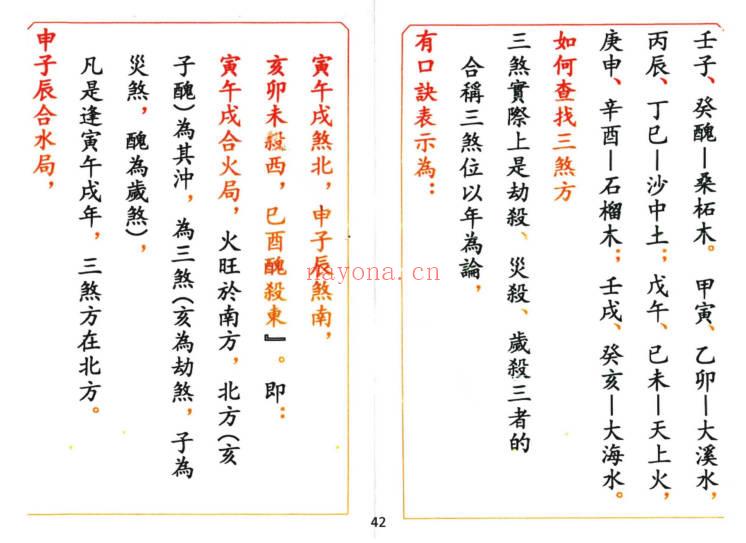 壬子、癸醜—桑柘木。 甲寅、乙卯—大溪水,
丙辰、丁巳—沙中土; 戊午、已未—天上火,
庚申、辛酉—石榴木; 壬戌、癸亥—大海水。
如何查找三煞方
三煞實際上是劫殺、災殺、歲殺三者的
合稱三煞位以年為論,
有口訣表示為:
寅午戌煞北, 申子辰煞南,
亥卯未殺西, 巳酉醜殺東』。即:
寅午戌合火局, 火旺於南方, 北方(亥
子醜)為其沖, 為三煞(亥為劫煞, 子為
災煞, 醜為歲煞),
凡是逢寅午戌年, 三煞方在北方。
申子辰合水局,
42
nayona.cn